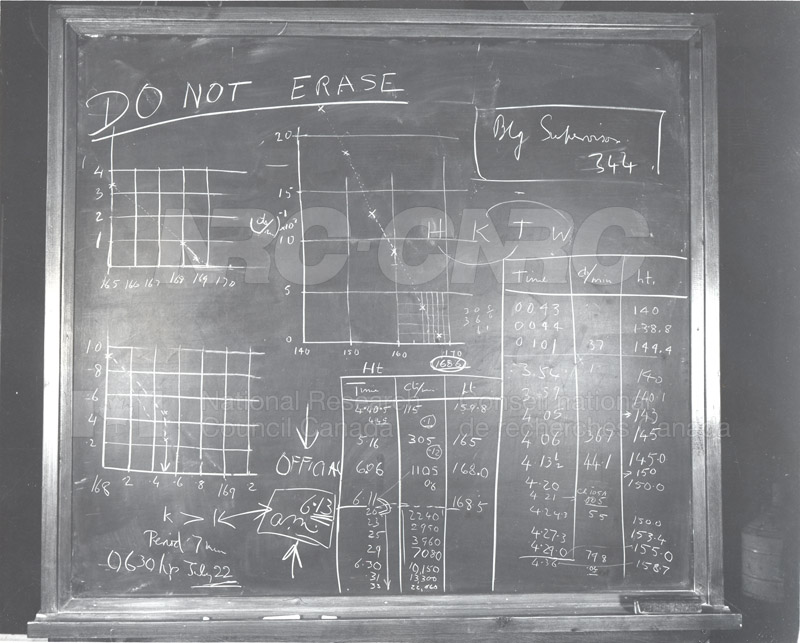 DO NOT ERASE
Blg Supervisor
344
4
3
2
1
165 166 167 168 169 170
20
15
10
5
0
140 150 160 170
168.6
H K J W
NRC-CNRC
National Research Council Canada
Conseil national de recherches Canada
1.0
.8
.6
.4
.2
168 2 4 6 8 169 2
k > 1
Period 7 min
0630 hp July 22
OFFICIAL
6.13
a.m.
Ht
Time Ct/min ht
4.40.5 115 159.8
5.16 305 165
6.06 1105 168.0
6.11 168.5
20 2240
23 2950
25 3960
29 7080
6.30 10,150
.31 13,300
32
Time ct/min ht.
0043 140
0044 138.8
0101 37 149.4
3.54 140
3.59 140.1
4.05 143
4.06 36.7 145
4.13½ 44.1 145.0
150
4.20 150.0
4.21
4.24.3 55 150.0
4.27.3 153.4
4.29.0 79.8 155.0
4.36 158.7